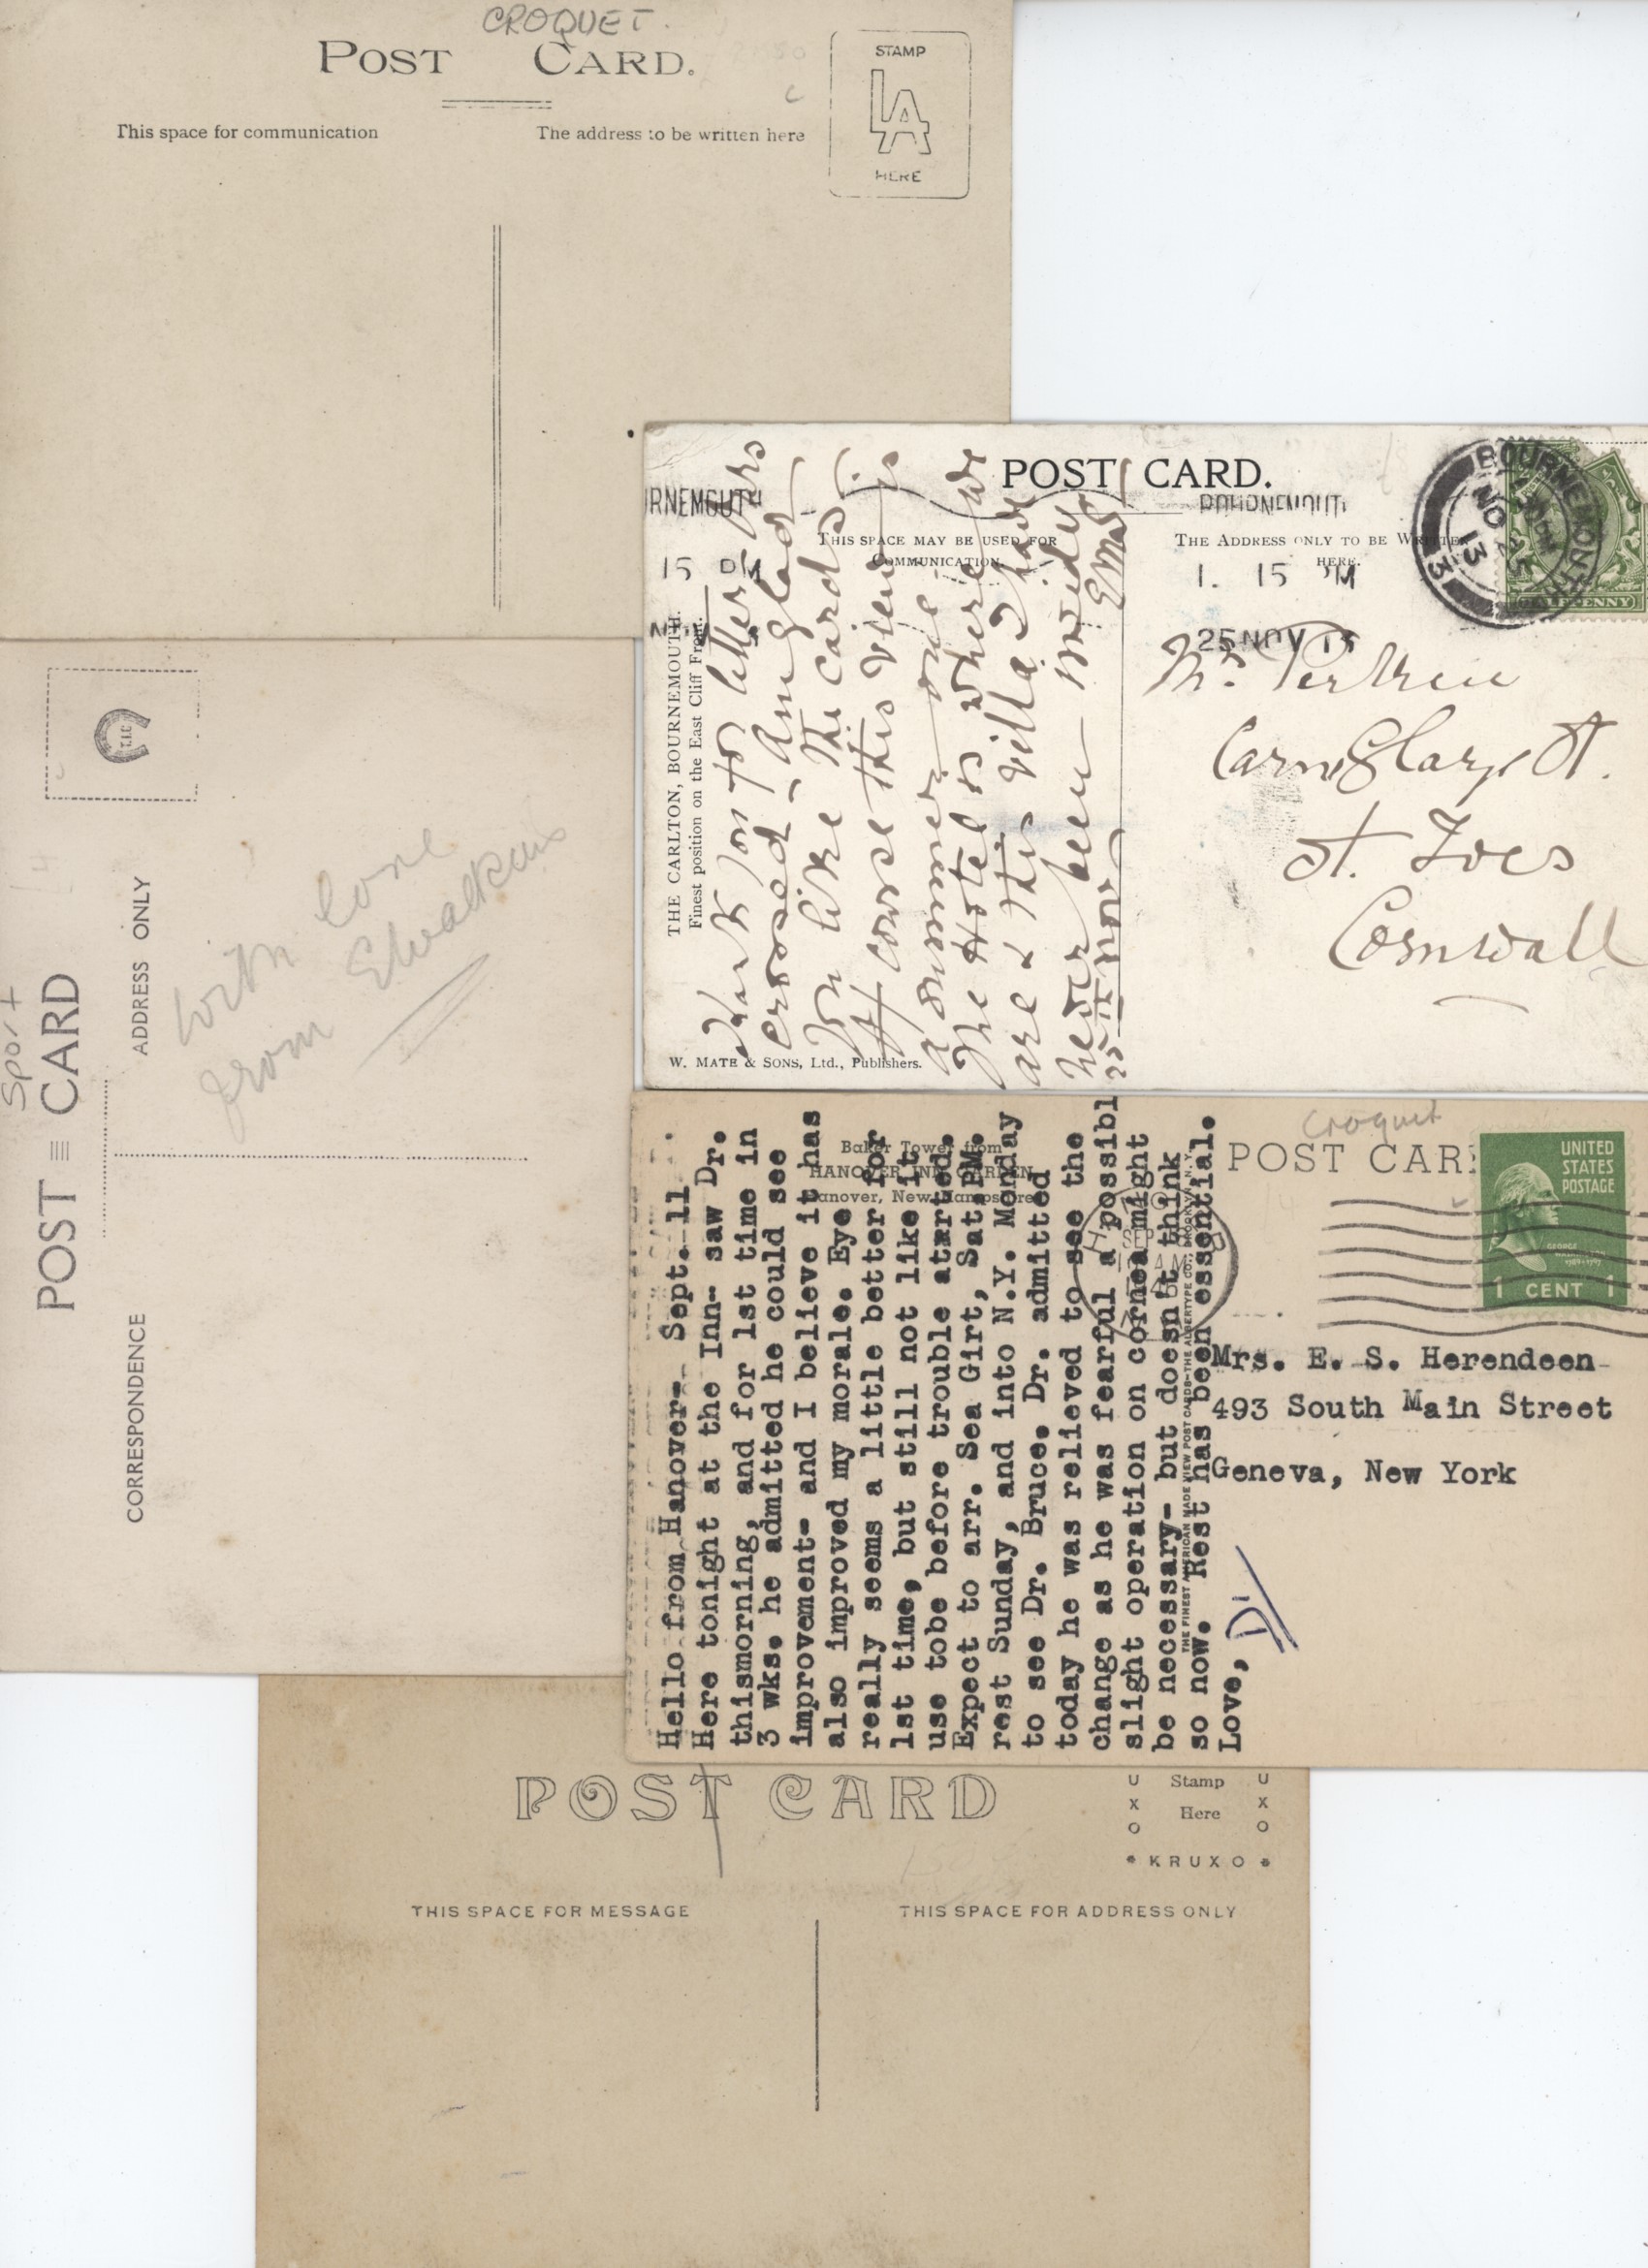 CROQUET.
POST CARD.
This space for communication
The address to be written here
STAMP
LA
HERE
POST CARD.
RNEMOUTH
BOURNEMOUTH
THIS SPACE MAY BE USED FOR
COMMUNICATION.
THE ADDRESS ONLY TO BE WRITTEN
HERE.
15 PM
1. 15 PM
25 NOV 13
BOURNEMOUTH
NO 25
13
3
HALFPENNY
THE CARLTON, BOURNEMOUTH.
Finest position on the East Cliff Front.
for letter
crossed - Am glad
you like the cards.
Of course this view is
a summer one
The Hotel is where we
are & this villa I have
never been inside
25th Nov
W. MATE & SONS, Ltd., Publishers.
St. Ives
Cornwall
Sport
POST CARD
ADDRESS ONLY
CORRESPONDENCE
With love
from
Croquet
POST CAR
UNITED
STATES
POSTAGE
GEORGE
1 CENT 1
Baker Tower from
HANOVER INN GARDEN
Hanover, New Hampshire
Hello from Hanover- Sept. 11
Here tonight at the Inn- saw Dr.
thismorning, and for 1st time in
3 wks. he admitted he could see
improvement- and I believe it has
also improved my morale. Eye
really seems a little better for
1st time, but still not like it
use tobe before trouble started.
Expect to arr. Sea Girt, Sat.PM.
rest Sunday, and into N.Y. Monday
to see Dr. Bruce. Dr. admitted
today he was relieved to see the
change as he was fearful a possibl
slight operation on cornea might
be necessary- but doesn't think
so now. Rest has been essential.
Love, Di
THE FINEST AMERICAN MADE VIEW POST CARDS-THE ALBERTYPE CO., BROOKLYN, N.Y.
Mrs. E. S. Herendeen
493 South Main Street
Geneva, New York
POST CARD
U Stamp U
X Here X
O O
KRUXO
THIS SPACE FOR MESSAGE
THIS SPACE FOR ADDRESS ONLY